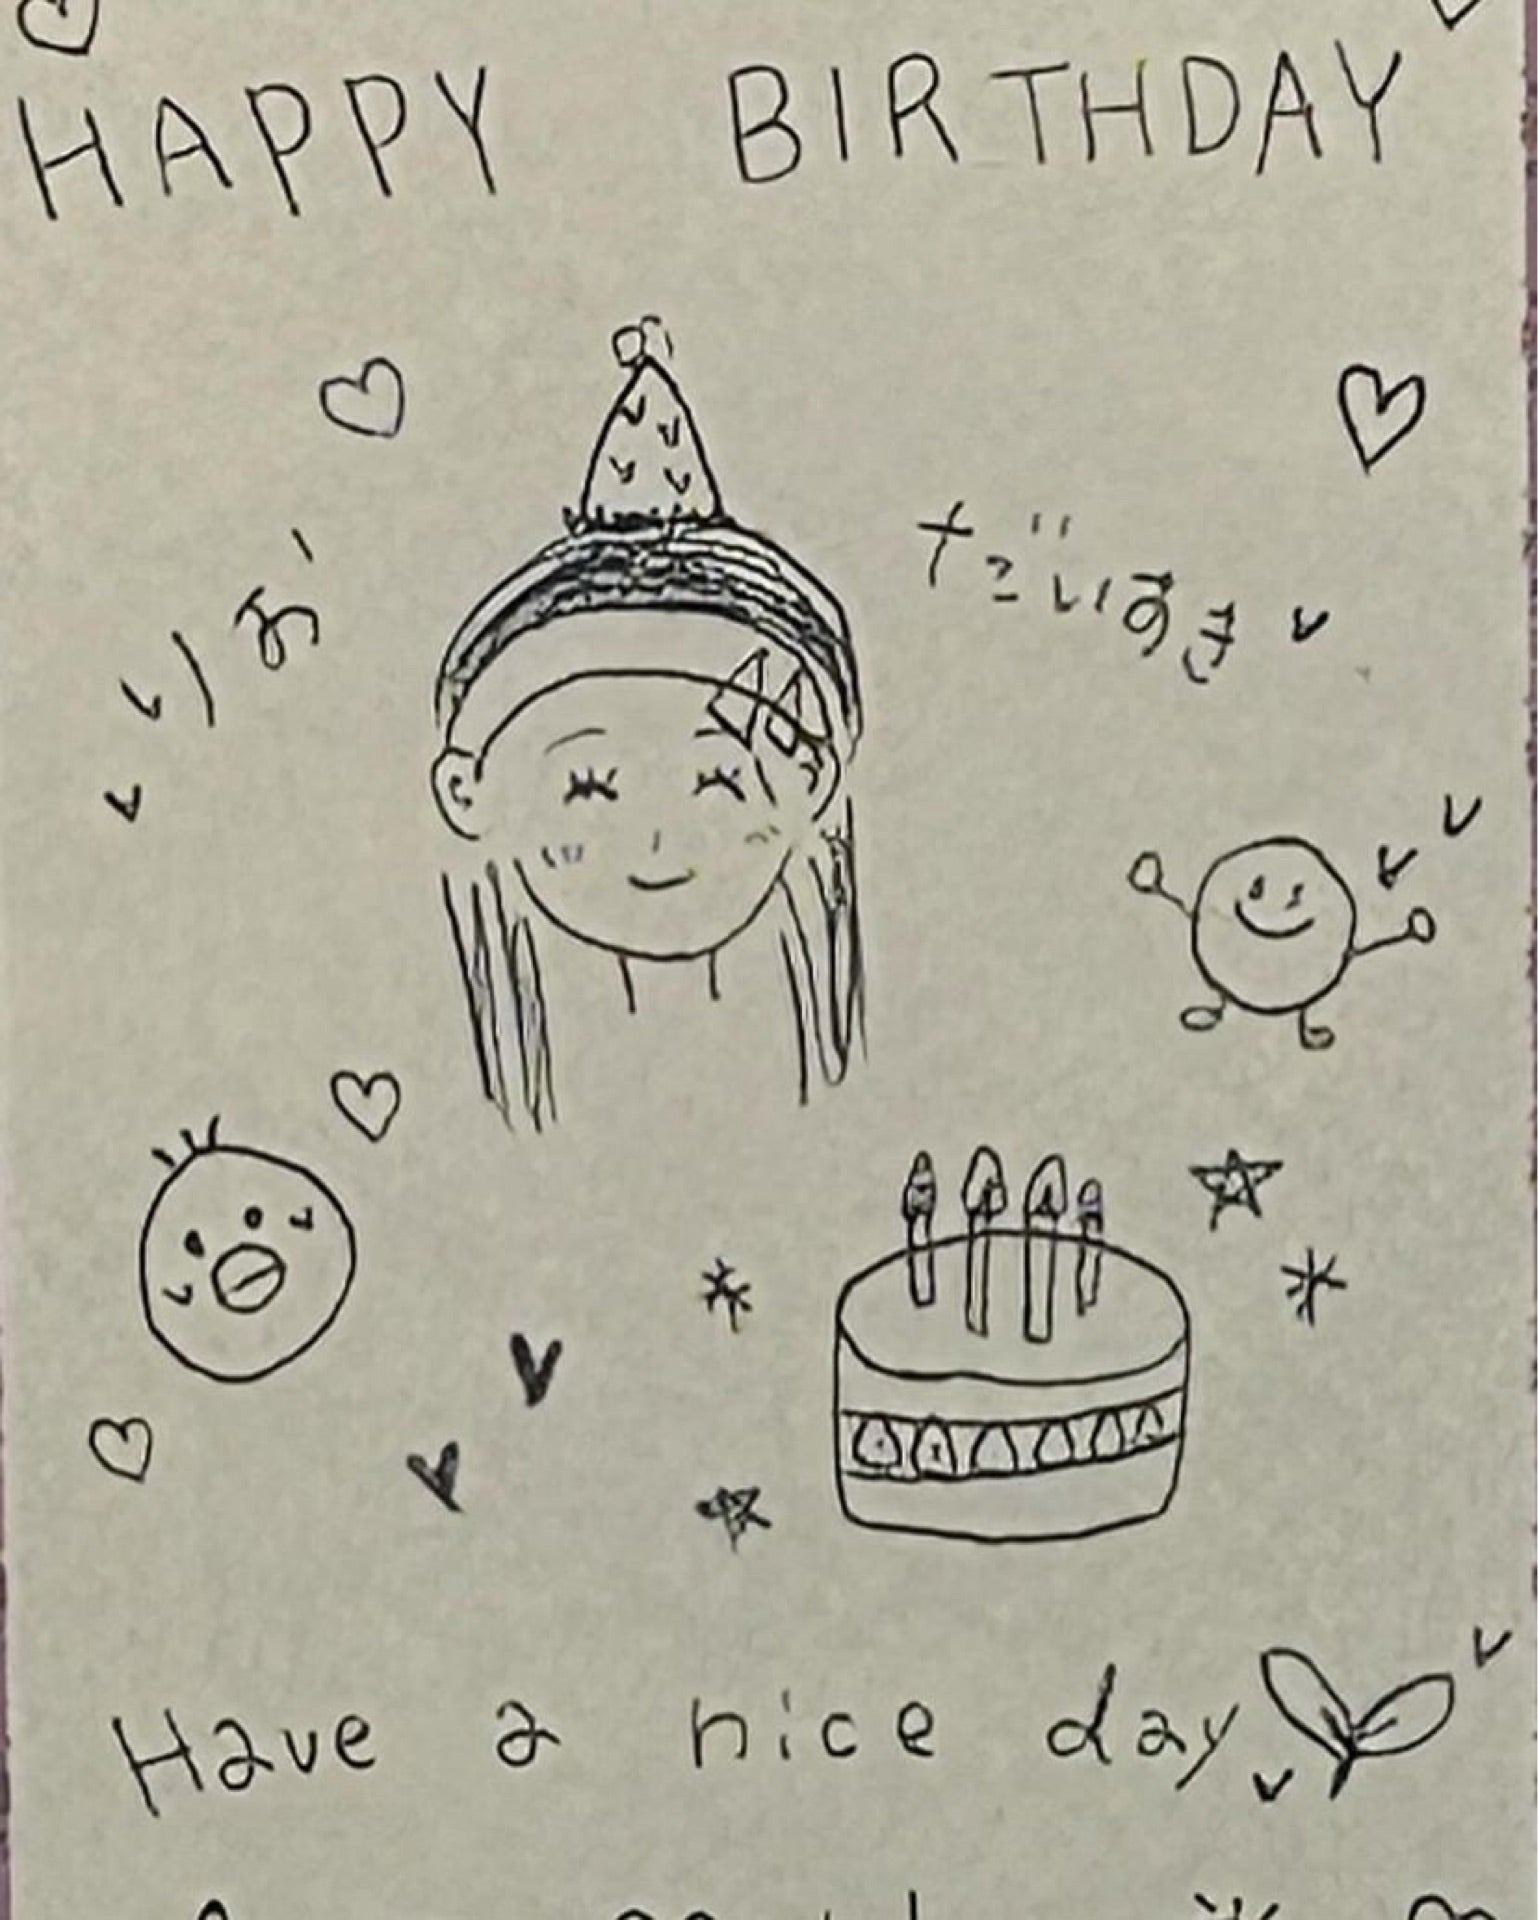 HAPPY BIRTHDAY
りお
だいすき
Have a nice day